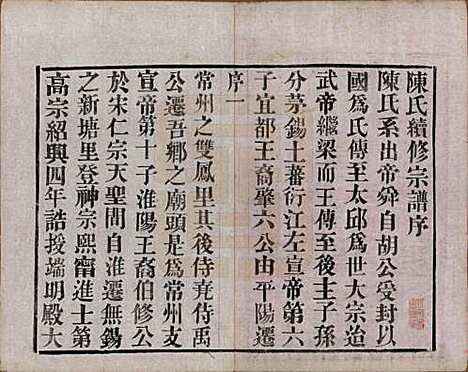 陳氏續修宗譜序
陳氏系出帝舜自胡公受封以
國為氏傳至太邱爲世大宗迨
武帝繼梁而王傳至後主子孫
分茅錫土蕃衍江左宣帝第六
子宜都王裔肇六公由平陽遷
序一
常州之雙鳳里其後侍堯侍禹
公遷吾鄉之廟頭是爲常州支
宣帝第十子淮陽王裔伯修公
於宋仁宗天聖間自淮遷無錫
之新塘里登神宗熙甯進士第
高宗紹興四年誥授端明殿大